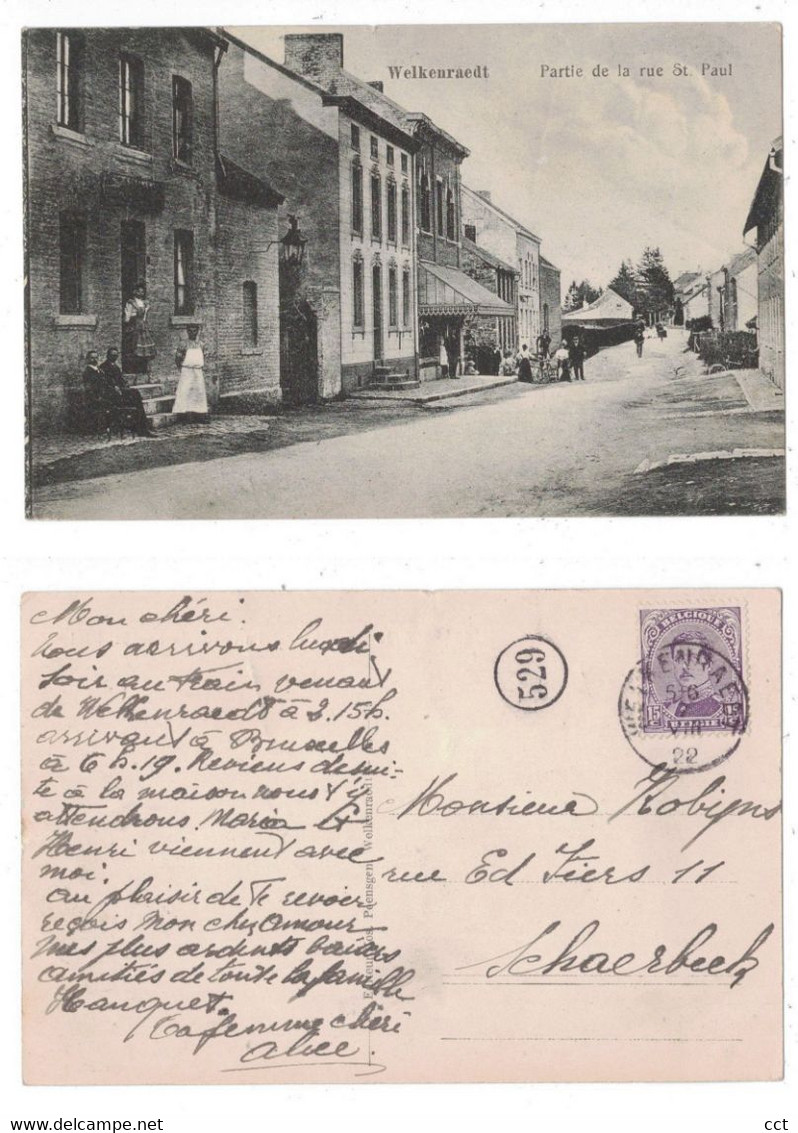 Welkenraedt Partie de la rue St. Paul
Mon chéri.
nous arrivons lundi
soir au train venant
de Welkenraedt à 2.15h.
arrivant à Bruxelles
à 6 h. 19. Reviens de sui-
te à la maison nous t'y
attendrons. Maria &
Henri viennent avec
moi.
au plaisir de te revoir
reçois mon cher amour
mes plus ardents baisers
amitiés de toute la famille
Hanquet.
Ta femme chéri
Alice.
Poensgen, Welkenraedt
529
BELGIQUE
15 15
BELGIE
WELKENRAEDT
5-6
VIII
22
Monsieur Robijns
rue Ed Fiers 11
Schaerbeek
www.delcampe.net
cct